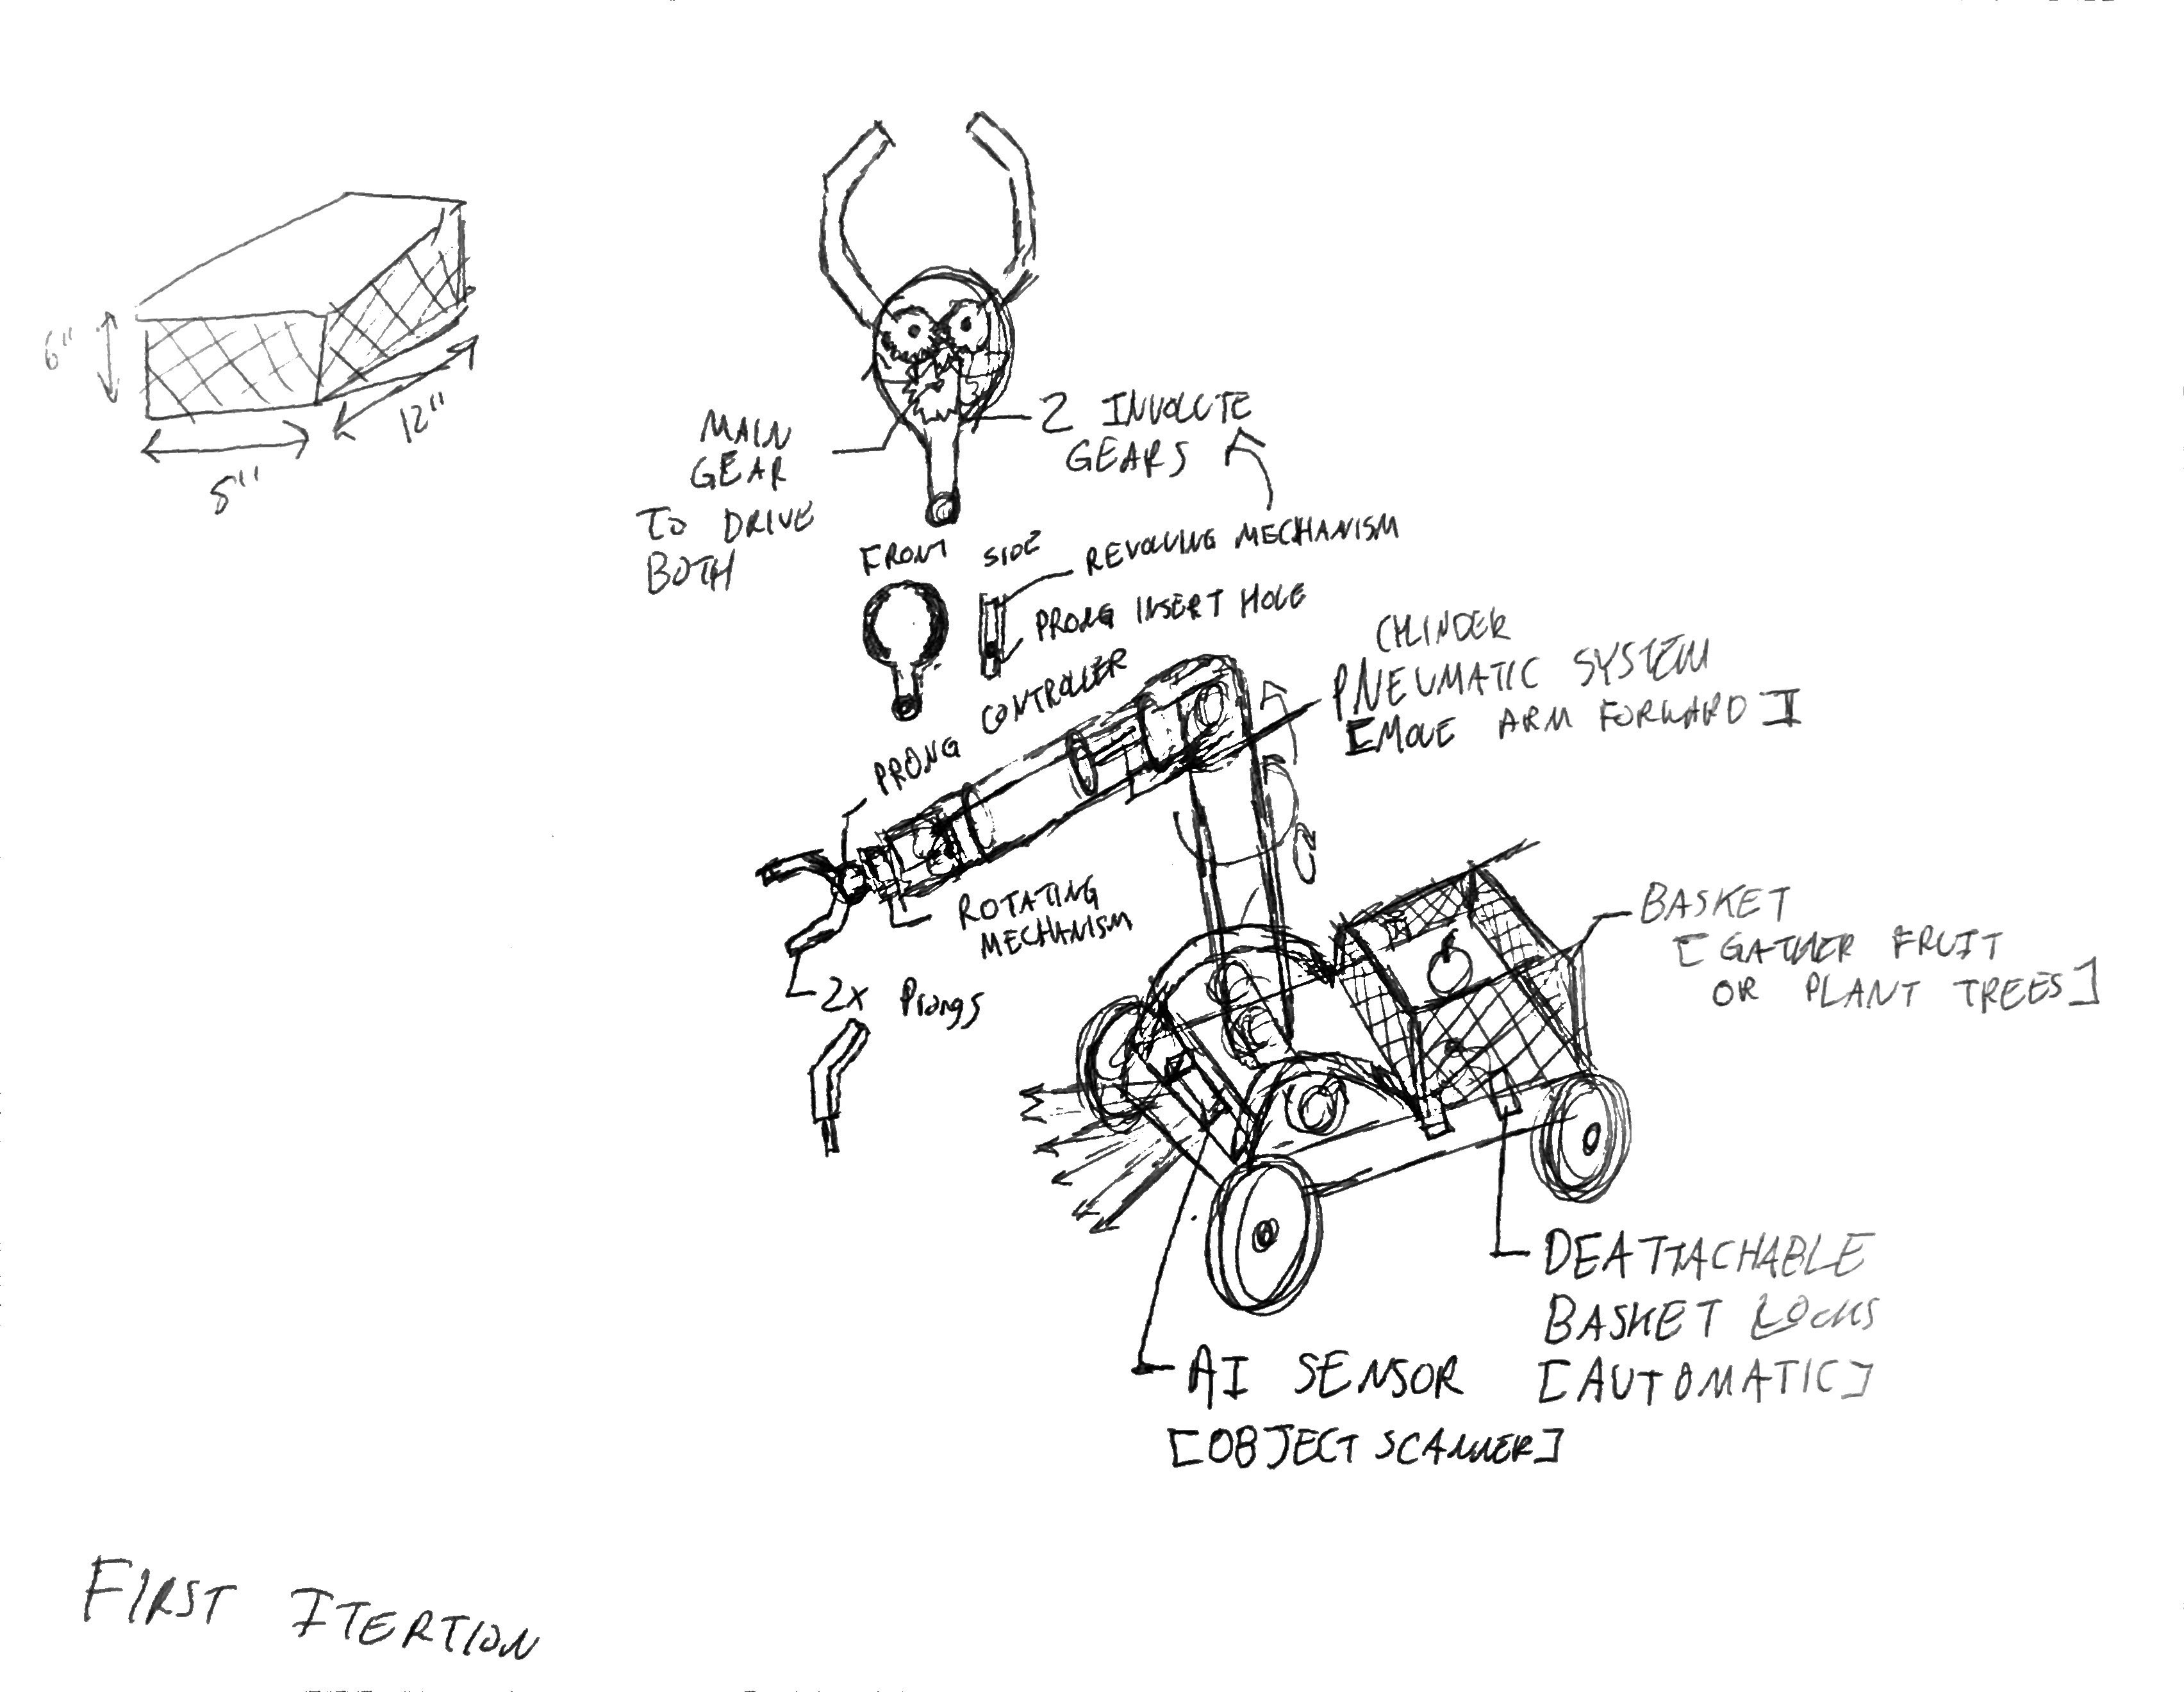 6"
12"
8"
MAIN
GEAR
TO DRIVE
BOTH
2 INVOLUTE
GEARS
FRONT
SIDE
REVOLVING MECHANISM
PRONG INSERT HOLE
PRONG CONTROLLER
CYLINDER
PNEUMATIC SYSTEM
[MOVE ARM FORWARD]
ROTATING
MECHANISM
2x Prongs
BASKET
[GATHER FRUIT
OR PLANT TREES]
DEATTACHABLE
BASKET LOCKS
[AUTOMATIC]
AI SENSOR
[OBJECT SCANNER]
FIRST ITERTION